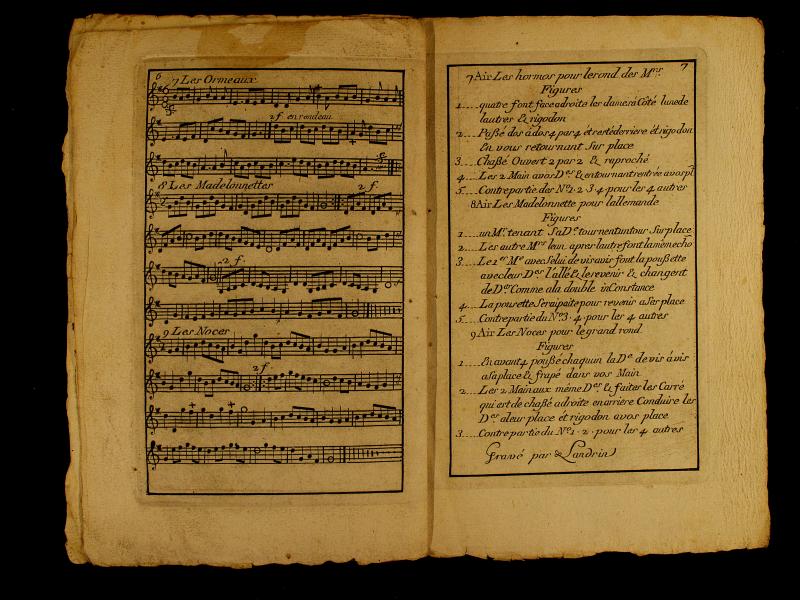 6
7 Les Ormeaux
2 f. en rondeau
8 Les Madelonnettes 2 f.
2 f.
9 Les Noces
2 f.
7
7 Air Les hormos pour le rond des M.rs
Figures
1.... quatre font face adroite les dames a Côté lunede
lautres & rigodon
2.... Paßé dos à dos 4 par 4 et resté derriere et rigodon
En vous retournant Sur place
3.... Chaßé Ouvert 2 par 2 & raproché
4.... Les 2 Main avos D.es & en tournant rentrée avos pl
5.... Contrepartie des N.os 1. 2. 3. 4. pour les 4 autres
8 Air Les Madelonnette pour lallemande
Figures
1.... un M.r tenant Sa D.e tournent un tour Sur place
2.... Les autre M.rs leun apres lautre font la même cho
3.... Le 1.er M.e avec Selui de vis avis font la poußette
avec leur D.es l'allé & le revenir & changent
de D.es Comme ala double inConstance
4.... La pousette Sera ipaite pour revenir a Ser place
5.... Contrepartie du N.o 3. 4. pour les 4 autres
9 Air Les Noces pour le grand rond
Figures
1.... En avant 4 poußé chaquun la D.e de vis à vis
a Sa place & frapé dans vos Main
2.... Les 2 Main aux même D.es & faites les Carré
qui est de chaßé adroite en arriere Conduire les
D.es a leur place et rigodon avos place
3.... Contrepartie du N.o 1. 2. pour les 4 autres
Gravé par Landrin